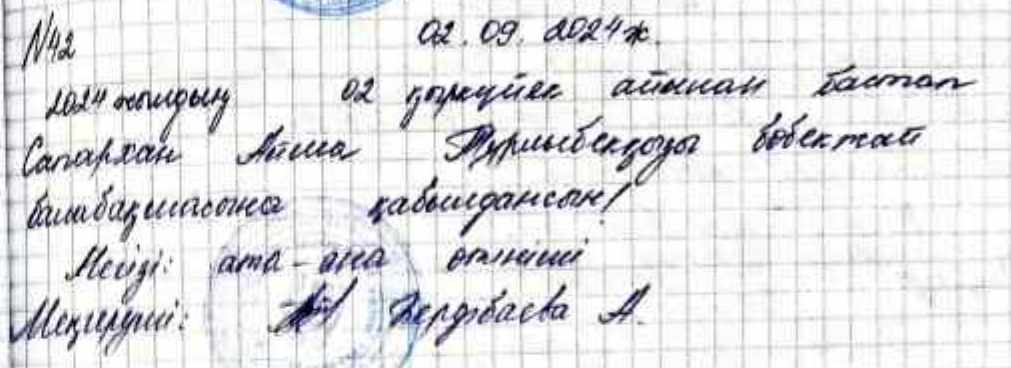 N42 02.09.2024ж.
2024 жылдың 02 қыркүйек айынан бастап
Сапархан Айша Тұрлыбекқызы бөбекжай
балабақшасына қабылдансын!
Негізі: ата-ана өтініші
Меңгеруші: Бердібаева А.